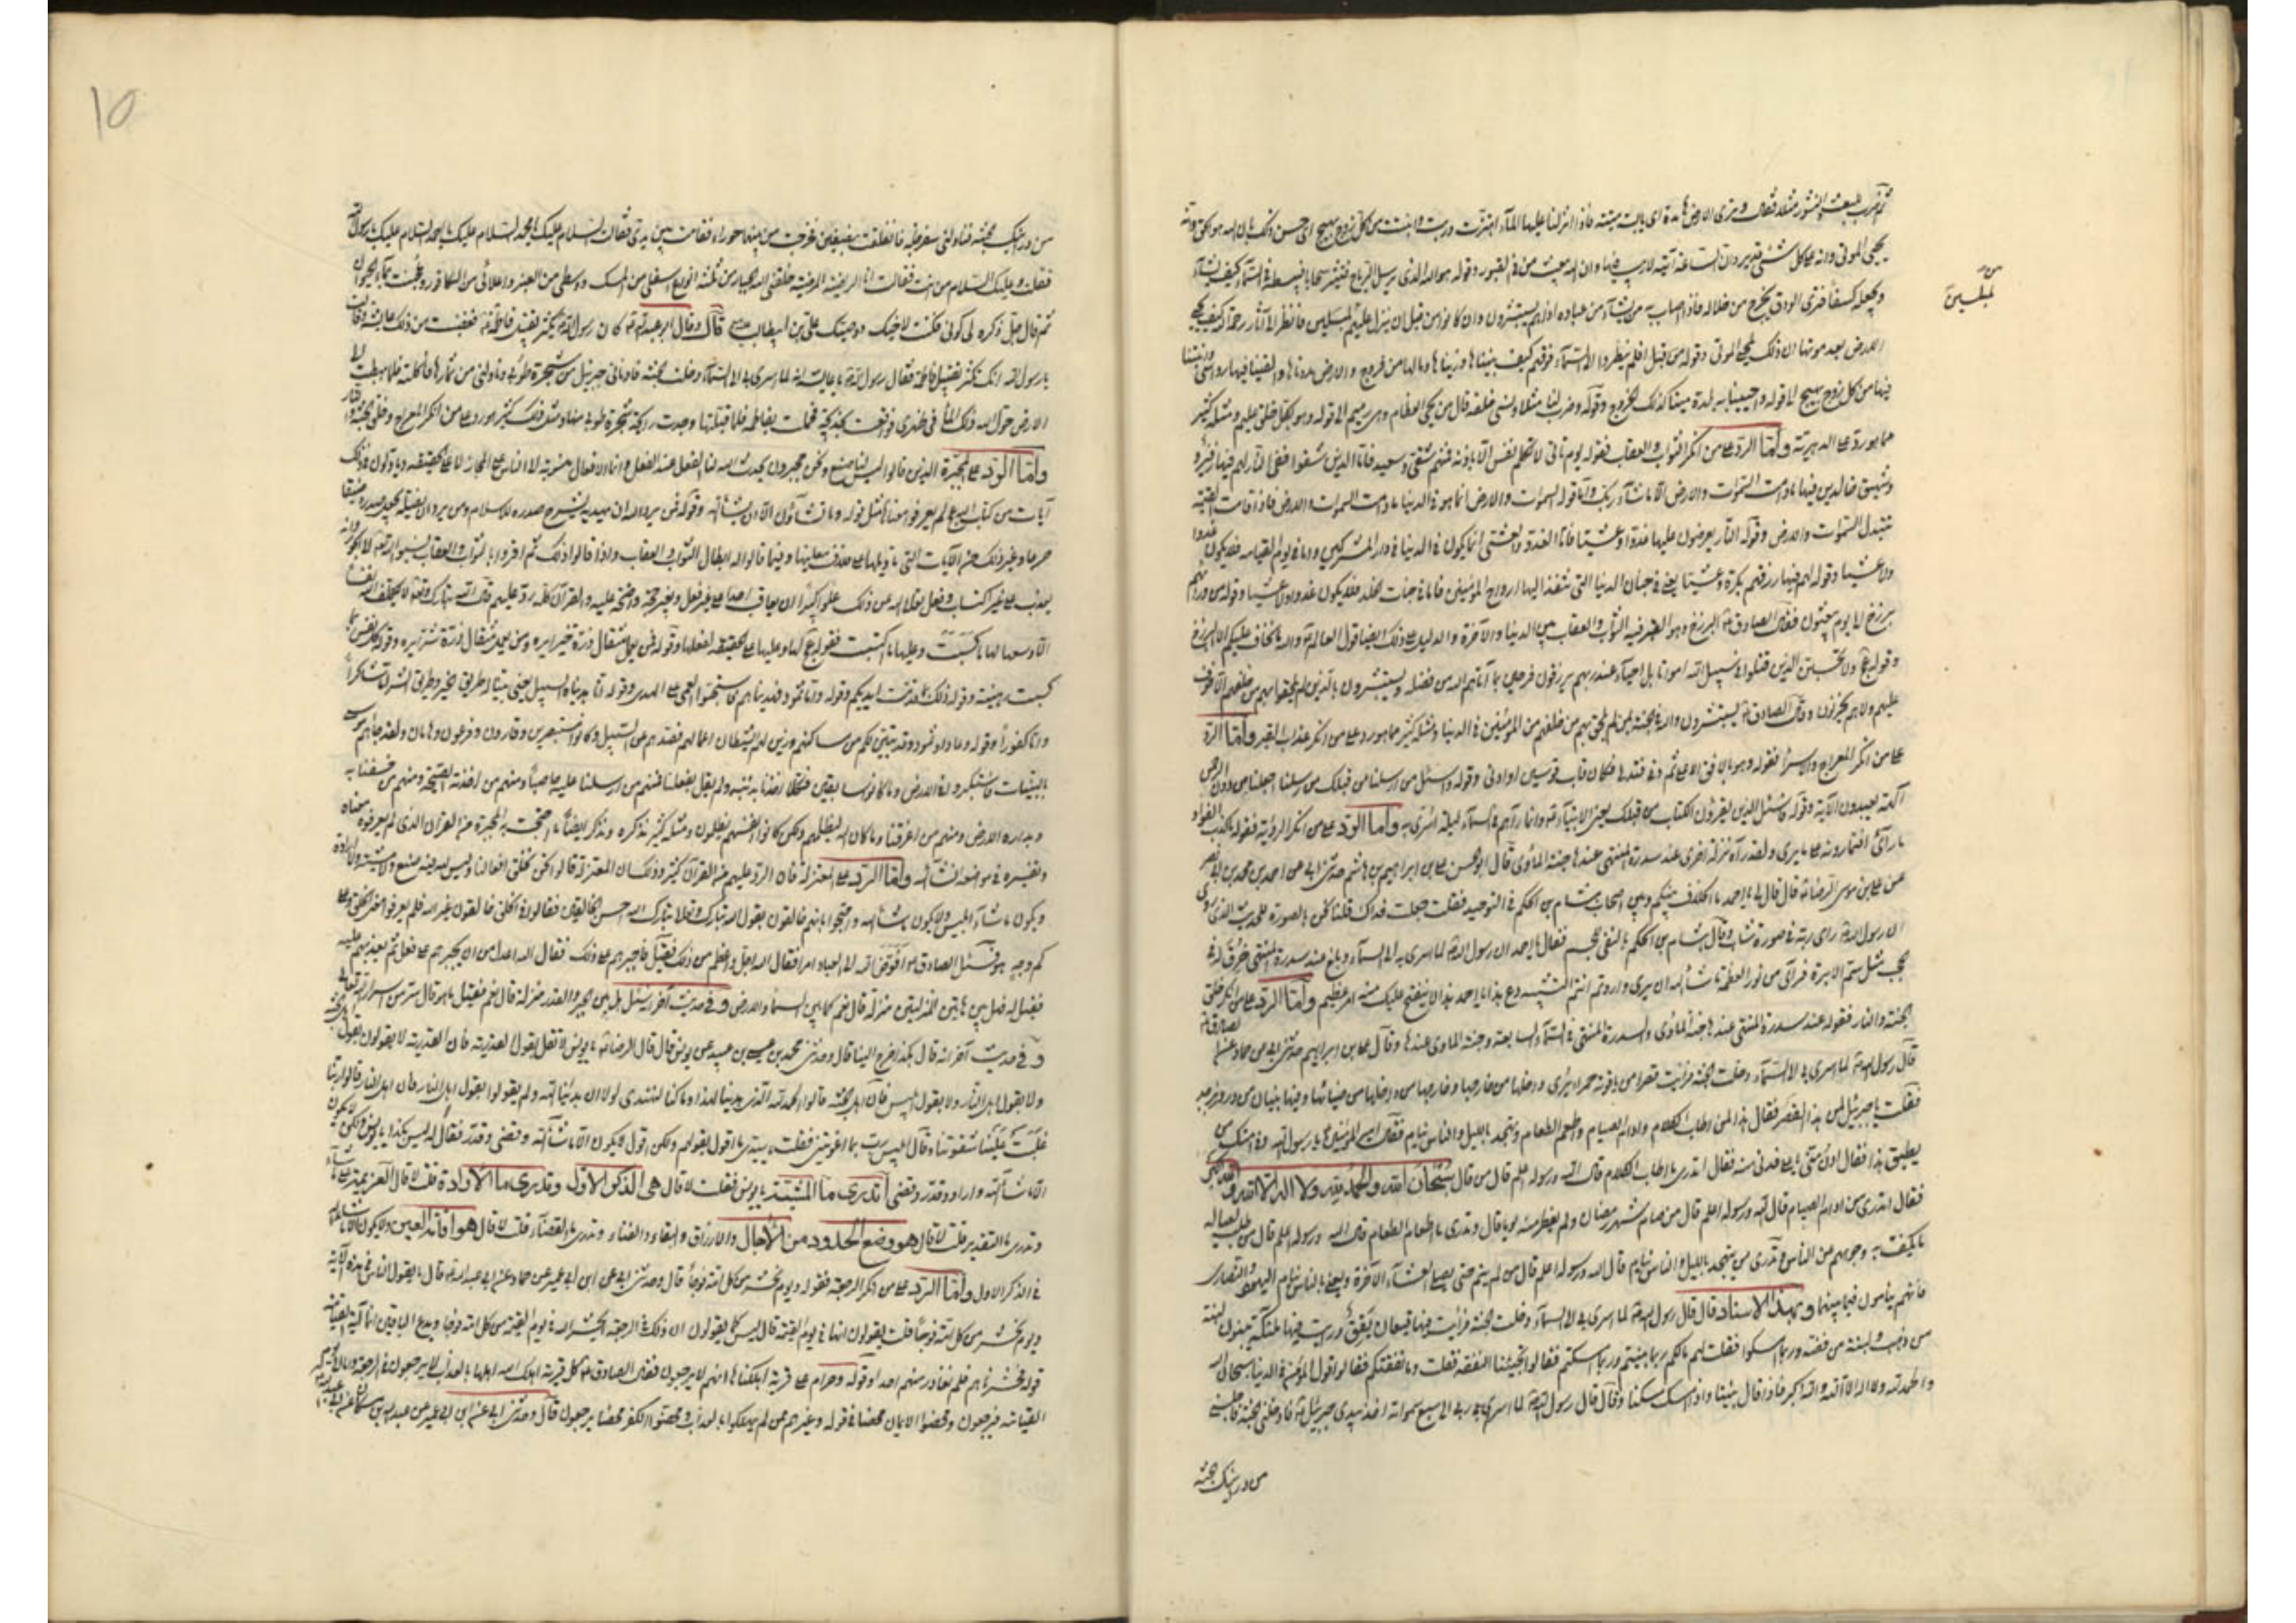 ثم ضرب للبعث والنشور مثلا فقال وترى الارض هامدة اى يابسة ميتة فاذا انزلنا عليها المآء اهتزت وربت وانبتت من كل زوج بهيج اى حسن ذلك بان الله هو الحق وانه
يحيى الموتى وانه على كل شئ قدير وان الساعة آتية لا ريب فيها وان الله يبعث من فى القبور وقوله هو الله الذى يرسل الرياح فتثير سحابا فيبسطه فى السمآء كيف يشآء
ويجعله كسفا فترى الودق يخرج من خلاله فاذا اصاب به من يشآء من عباده اذا هم يستبشرون وان كانوا من قبل ان ينزل عليهم لمبلسين فانظر الى آثار رحمة الله كيف يحيى
لمبلسين
الارض بعد موتها ان ذلك لمحيى الموتى وقوله من قبل افلم ينظروا الى السمآء فوقهم كيف بنيناها وزيناها وما لها من فروج والارض مددناها والقينا فيها رواسى وانبتنا
فيها من كل زوج بهيج الى قوله واحيينا به بلدة ميتا كذلك الخروج وقوله وضرب لنا مثلا ونسى خلقه قال من يحيى العظام وهى رميم الى قوله وهو بكل خلق عليم ومثله كثير
مما هو رد على الدهرية واما الرد على من انكر الثواب والعقاب فقوله يوم تاتى لا تكلم نفس الا باذنه فمنهم شقى وسعيد فاما الذين شقوا ففى النار لهم فيها زفير و
وشهيق خالدين فيها ما دامت السموات والارض الا ما شآء ربك واما قوله السموات والارض انما هو فى الدنيا ما دامت السموات والارض فاذا قامت القيمة
تتبدل السموات والارض وقوله النار يعرضون عليها غدوا وعشيا فاما الغدو والعشى انما يكون فى الدنيا فى دار المشركين واما فى يوم القيامة فلا يكون غدوا
ولا عشيا وقوله لهم فيها رزقهم بكرة وعشيا يعنى فى جنان الدنيا التى تنقل اليها ارواح المؤمنين فاما فى جنات الخلد فلا يكون غدوا ولا عشيا وقوله من ورائهم
برزخ الى يوم يبعثون فقال الصادق ع البرزخ وهو القبر فيه الثواب والعقاب بين الدنيا والآخرة والدليل على ذلك ايضا قول العالم ع والله ما يخاف عليكم الا البرزخ
وقوله ع ولا تحسبن الذين قتلوا فى سبيل الله امواتا بل احيآء عند ربهم يرزقون فرحين بما آتاهم الله من فضله ويستبشرون بالذين لم يلحقوا بهم من خلفهم الا خوف
عليهم ولا هم يحزنون وقال الصادق ع يستبشرون والله فى الجنة بمن لم يلحق بهم من خلفهم من المؤمنين فى الدنيا ومثله كثير مما هو رد على من انكر عذاب القبر واما الرد
على من انكر المعراج والاسرا فقوله وهو بالافق الاعلى ثم دنى فتدلى فكان قاب قوسين او ادنى وقوله واسئل من ارسلنا من قبلك من رسلنا اجعلنا من دون الرحمن
آلهة يعبدون الآية وقوله فاسئل الذين يقرؤن الكتاب من قبلك يعنى الانبيآء ع وانما رآهم فى السمآء ليلة اسرى به واما الرد على من انكر الرؤية فقوله ما كذب الفؤاد
ما رآى افتمارونه على ما يرى ولقد رآه نزلة اخرى عند سدرة المنتهى عندها جنة الماوى قال ابو الحسن على بن ابراهيم بن هاشم حدثنى ابى عن احمد بن محمد بن ابى نصر
عن على بن موسى الرضا ع قال قال لى يا احمد ما الخلاف بينكم وبين اصحاب هشام بن الحكم فى التوحيد فقلت جعلت فداك قلنا نحن بالصورة للحديث الذى روى
ان رسول الله ص راى ربه فى صورة شاب وقال هشام بن الحكم بالنفى للجسم فقال يا احمد ان رسول الله ص لما اسرى به الى السمآء وبلغ عند سدرة المنتهى خرق له فى
الحجب مثل سم الابرة فرآى من نور العظمة ما شآء الله ان يرى واردتم انتم التشبيه دع هذا يا احمد هذا لا ينفتح عليك منه امر عظيم واما الرد على من انكر خلق
الجنة والنار فقوله عند سدرة المنتهى عندها جنة الماوى والسدرة المنتهى فى السمآء السابعة وجنة الماوى عندها وقال على بن ابراهيم حدثنى ابى عن حماد عن الصادق ع
قال رسول الله ص لما اسرى بى الى السمآء دخلت الجنة فرايت قصرا من ياقوتة حمرا يرى داخلها من خارجها وخارجها من داخلها من ضيائها وفيها بنيان من در وزبرجد
فقلت يا جبرئيل لمن هذا القصر فقال هذا لمن اطاب الكلام وادام الصيام واطعم الطعام وتهجد بالليل والناس نيام فقال امير المؤمنين ع يا رسول الله وفى امتك من
يطيق هذا فقال ادن منى يا على فدنى منه فقال اتدرى ما اطاب الكلام قال الله ورسوله اعلم قال من قال سبحان الله والحمد لله ولا اله الا الله والله اكبر
فقال اتدرى من ادام الصيام قال الله ورسوله اعلم قال من صام شهر رمضان ولم يفطر منه يوما قال وتدرى ما اطعام الطعام قال الله ورسوله اعلم قال من طلب لعياله
ما يكف به وجوههم عن الناس وتدرى من يتهجد بالليل والناس نيام قال الله ورسوله اعلم قال من لم ينم حتى يصلى العشآء الآخرة ويعنى بالناس نيام اليهود والنصارى
فانهم ينامون فيما بينهما وبهذا الاسناد قال قال رسول الله ص لما اسرى بى الى السمآء دخلت الجنة فرايت فيها قيعان يقق ورايت فيها ملئكة يبنون لبنة
من ذهب ولبنة من فضة وربما امسكوا فقلت لهم مالكم ربما بنيتم وربما امسكتم فقالوا حتى تجيئنا النفقة فقلت وما نفقتكم فقالوا قول المؤمن فى الدنيا سبحان الله
والحمد لله ولا اله الا الله والله اكبر فاذا قال بنينا واذا امسك امسكنا وقال قال رسول الله ص لما اسرى بى ربى الى سبع سمواته اخذ بيدى جبرئيل ع فادخلنى الجنة فاجلسنى
من درنوك الجنة
١٥
من درانيك الجنة فناولنى سفرجلة فانفلقت بنصفين فخرجت من بينهما حوراء فقامت بين يدى فقالت السلام عليك يا محمد السلام عليك يا احمد السلام عليك يا رسول الله
فقلت وعليك السلام من انت فقالت انا الراضية المرضية خلقنى الله الجبار من ثلثة انواع اسفلى من المسك ووسطى من العنبر واعلائى من الكافور وعجنت بمآء الحيوان
ثم قال جل ذكره لى كونى فكنت لاخيك ووصيك على بن ابيطالب ع قال وقال ابو عبد الله ع كان رسول الله ص يكثر تقبيل فاطمة ع فغضبت من ذلك عايشة وقالت
يا رسول الله انك تكثر تقبيل فاطمة فقال رسول الله ص يا عايشة انه لما اسرى بى الى السمآء دخلت الجنة فادنانى جبرئيل من شجرة طوبى وناولنى من ثمارها فاكلته فلما هبطت الى
الارض حول الله ذلك المآء فى ظهرى فواقعت بخديجة فحملت بفاطمة فلما قبلتها وجدت رايحة شجرة طوبى منها ومثل ذلك كثير هو رد على من انكر المعراج وخلق الجنة والنار
واما الرد على المجبرة الذين قالوا ليس لنا صنع ونحن مجبرون يحدث الله لنا الفعل عند الفعل وانما الافعال منسوبة الى الناس على المجاز لا على الحقيقة وتاولوا فى ذلك
آيات من كتاب الله ع لم يعرفوا معناها مثل قوله وما تشآؤن الا ان يشآء الله وقوله فمن يرد الله ان يهديه يشرح صدره للاسلام ومن يرد ان يضله يجعل صدره ضيقا
حرجا وغير ذلك من الآيات التى تاويلها على خلاف معانيها وفيما قالوا ابطال الثواب والعقاب واذا قالوا ذلك ثم اقروا بالثواب والعقاب نسبوا الله تع الى الجور وانه
يعذب على غير اكتساب وفعل تعالى الله عن ذلك علوا كبيرا ان يعاقب احدا على غير فعل وبغير حجة واضحة عليه والقرآن كله رد عليهم قال الله تبارك وتع لا يكلف الله نفسا
الا وسعها لها ما كسبت وعليها ما اكتسبت فقوله ع لها وعليها على الحقيقة لفعلها وقوله فمن يعمل مثقال ذرة خيرا يره ومن يعمل مثقال ذرة شرا يره وقوله كل نفس بما
كسبت رهينة وقوله ذلك بما قدمت ايديكم وقوله واما ثمود فهديناهم فاستحبوا العمى على الهدى وقوله انا هديناه السبيل يعنى بينا له طريق الخير وطريق الشر اما شاكرا
واما كفورا وقوله وعادا وثمود وقد تبين لكم من مساكنهم وزين لهم الشيطان اعمالهم فصدهم عن السبيل وكانوا مستبصرين وقارون وفرعون وهامان ولقد جاءهم موسى
بالبينات فاستكبروا فى الارض وما كانوا سابقين فكلا اخذنا بذنبه ولم يقل بفعلنا فمنهم من ارسلنا عليه حاصبا ومنهم من اخذته الصيحة ومنهم من خسفنا به
وبداره الارض ومنهم من اغرقنا وما كان الله ليظلمهم ولكن كانوا انفسهم يظلمون ومثله كثير نذكره ونذكر ايضا ما احتجت به المجبرة من القرآن الذى لم يعرفوا معناه
وتفسيره فى مواضعه انشآء الله واما الرد على المعتزلة فان الرد عليهم من القرآن كثير وذلك ان المعتزلة قالوا نحن نخلق افعالنا وليس لله فيه صنع ولا مشية ولا ارادة
ويكون ما شآء ابليس ولا يكون ما شآء الله واحتجوا انهم خالقون بقول الله تبارك وتعالى تبارك الله احسن الخالقين فقالوا فى الخلق خالقون غير الله فلم يعرفوا معنى الخلق وعلى
كم وجه هو فسئل الصادق ع افوض الله الى العباد امرا فقال الله اجل واعظم من ذلك فقيل فاجبرهم على ذلك فقال الله اعدل من ان يجبرهم على فعل ثم يعذبهم عليه
فقيل له فهل بين هاتين المنزلتين منزلة قال نعم كما بين السمآء والارض وفى حديث آخر سئل هل بين الجبر والقدر منزلة قال نعم فقيل ما هو قال سر من اسرار الله تعالى
وفى حديث آخر انه قال هكذا خرج الينا قال وحدثنى محمد بن عيسى بن عبيد عن يونس قال قال الرضا ع يا يونس لا تقل بقول القدرية فان القدرية لا يقولون بقول اهل الجنة
ولا بقول اهل النار ولا بقول ابليس فان اهل الجنة قالوا الحمد لله الذى هدينا لهذا وما كنا لنهتدى لولا ان هدينا الله ولم يقولوا بقول اهل النار فان اهل النار قالوا ربنا
غلبت علينا شقوتنا وقال ابليس رب بما اغويتنى فقلت يا سيدى ما اقول بقولهم ولكن اقول لا يكون الا ما شآء الله وقضى وقدر فقال ليس هكذا يا يونس ولكن لا يكون
الا ما شآء الله واراد وقدر وقضى اتدرى ما المشية يا يونس فقلت لا قال هى الذكر الاول وتدرى ما الارادة قلت لا قال العزيمة على ما شآء
وتدرى ما التقدير قلت لا قال هو وضع الحدود من الآجال والارزاق والبقاء والفناء وتدرى ما القضآء قلت لا قال هو اقامة العين ولا يكون الا ما شآء الله
فى الذكر الاول واما الرد على من انكر الرجعة فقوله ويوم نحشر من كل امة فوجا قال وحدثنى ابى عن ابن ابى عمير عن حماد عن ابى عبد الله ع قال ما يقول الناس فى هذه الآية
ويوم نحشر من كل امة فوجا قلت يقولون انها فى يوم القيمة قال ليس كما يقولون ان ذلك فى الرجعة ايحشر الله فى يوم القيمة من كل امة فوجا ويدع الباقين انما آية القيامة
قوله وحشرناهم فلم نغادر منهم احدا وقوله وحرام على قرية اهلكناها انهم لا يرجعون فقال الصادق ع كل قرية اهلك الله اهلها بالعذاب لا يرجعون فى الرجعة واما الى
القيامة فيرجعون ومحضوا الايمان محضا فى قوله وغيرهم ممن لم يهلكوا بالعذاب ومحضوا الكفر محضا يرجعون قال وحدثنى ابى عن ابن ابى عمير عن عبد الله بن مسكان عن ابى عبد الله